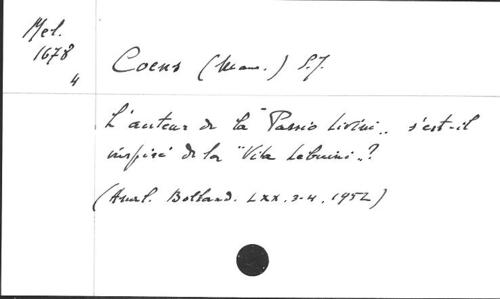 Mel.
1678
4
Coens (Maur.) S.J.
L'auteur de la "Passio Livini" s'est-il
inspiré de la "Vita Lebuini"?
(Anal. Bolland. LXX. 3-4. 1952)